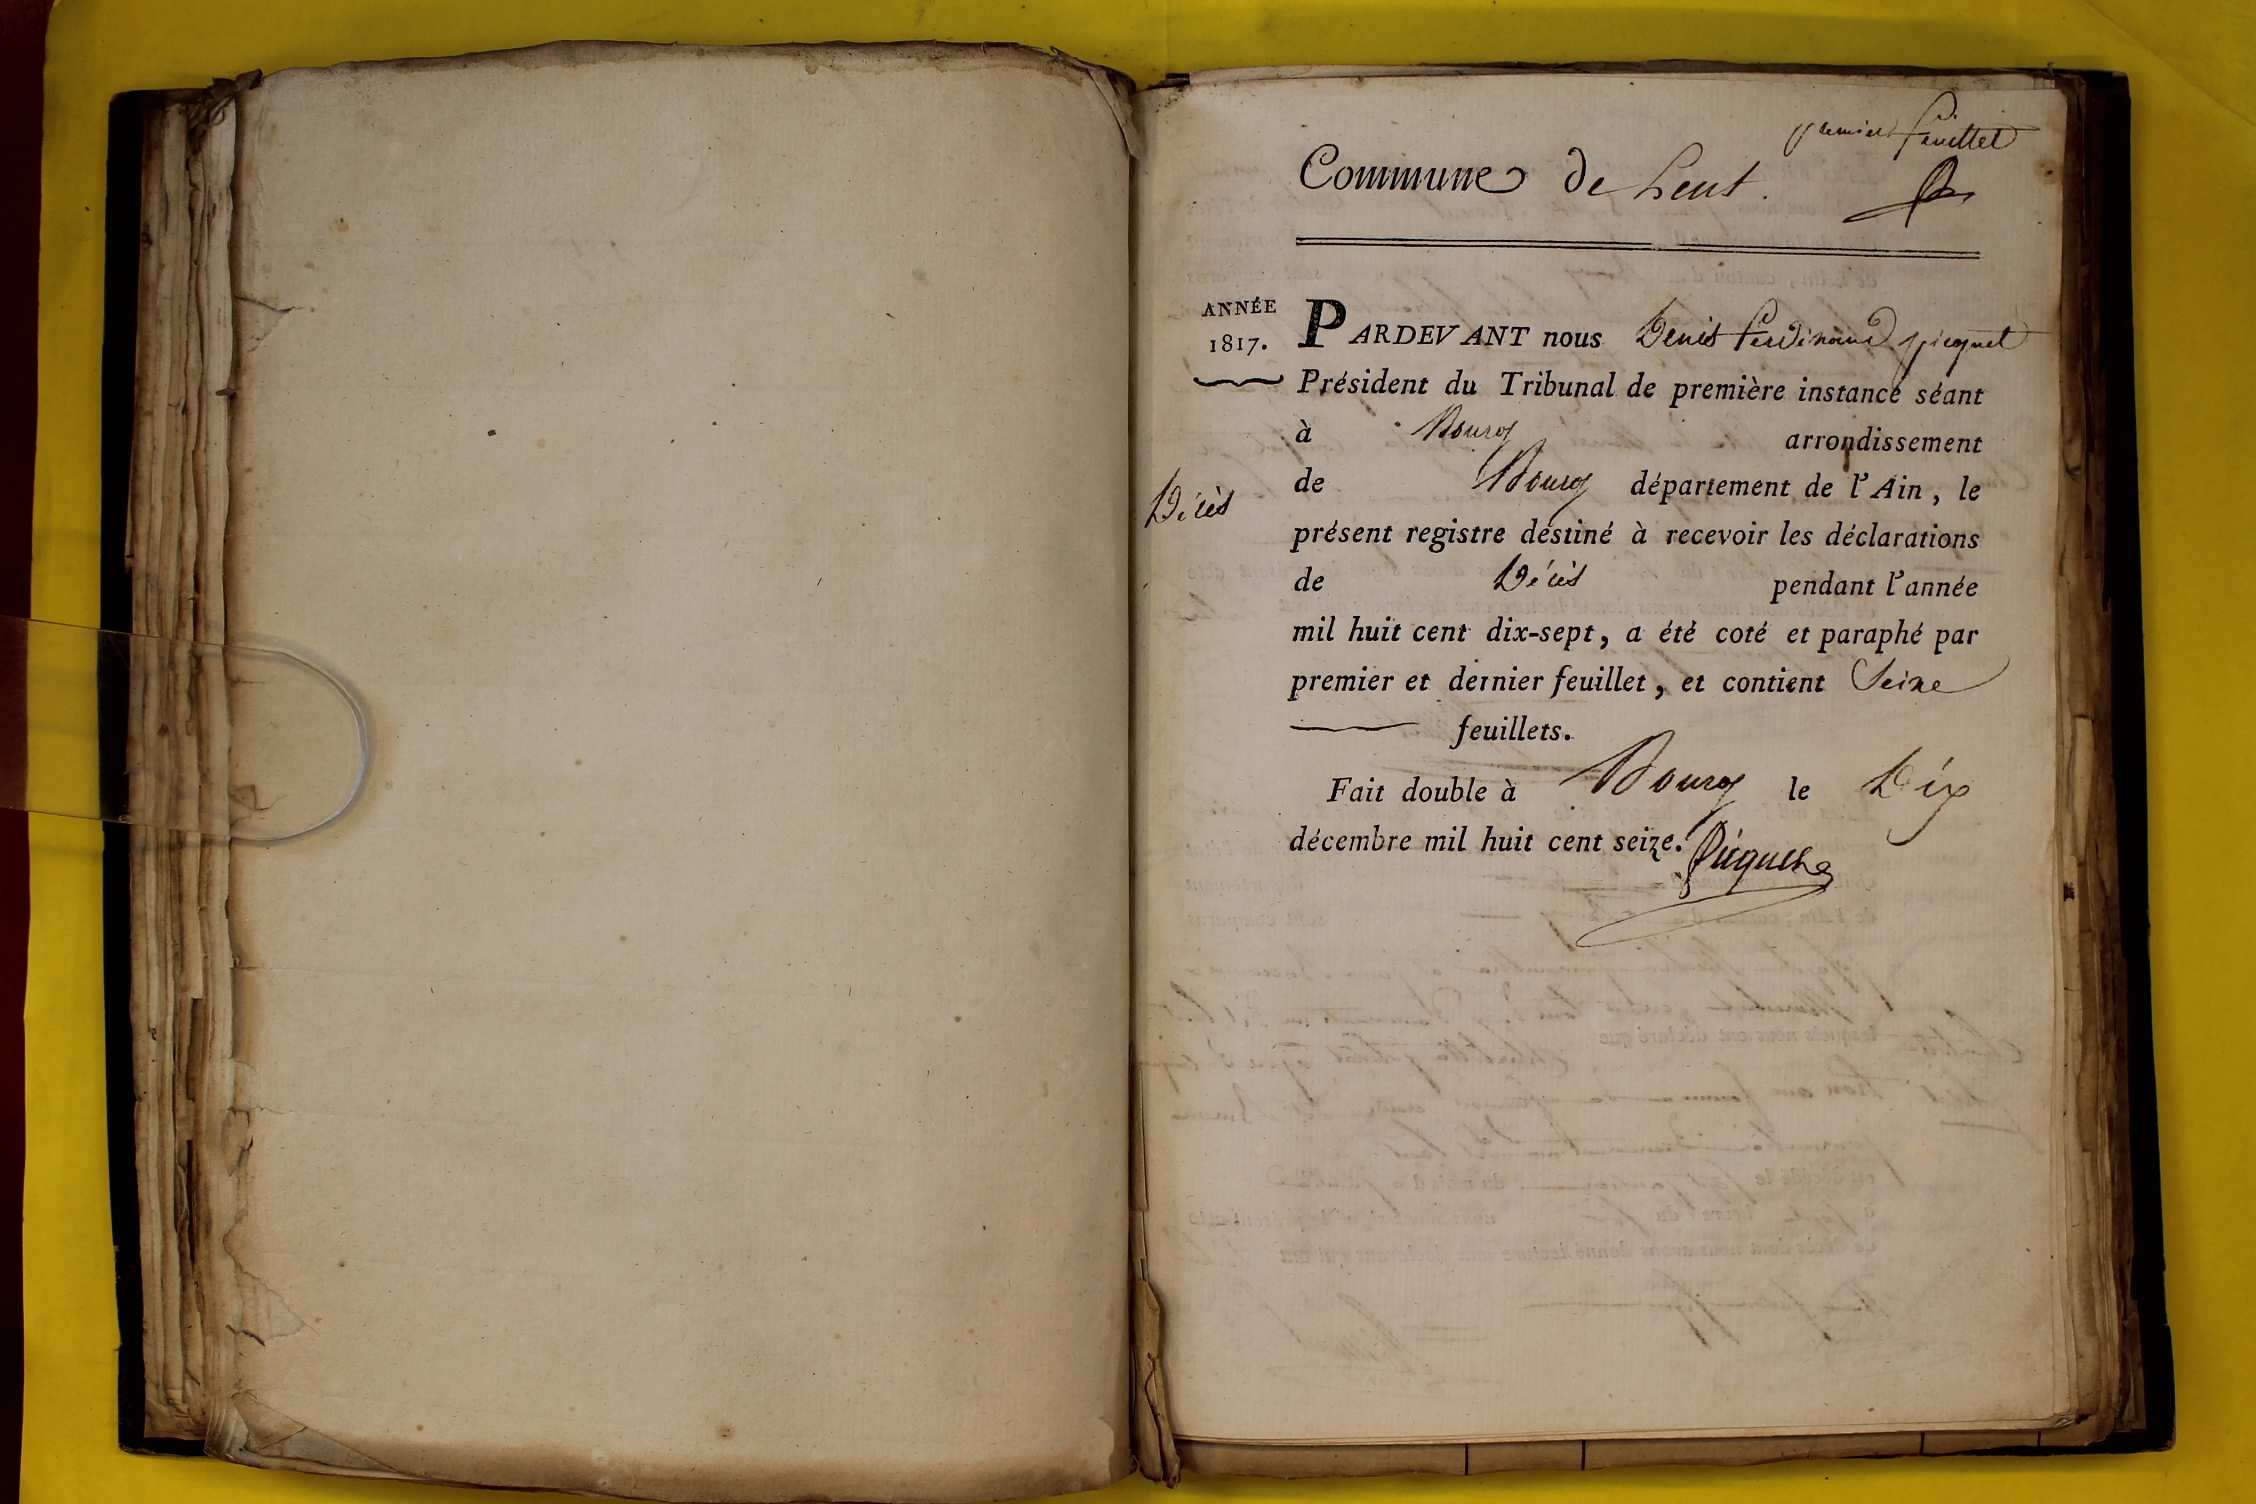 premier feuillet
Commune de Lent.
ANNÉE
1817.
PARDEVANT nous Denis Ferdinand picquet
Président du Tribunal de première instance séant
à Bourg arrondissement
de Bourg département de l'Ain, le
Décès
présent registre destiné à recevoir les déclarations
de Décès pendant l'année
mil huit cent dix-sept, a été coté et paraphé par
premier et dernier feuillet, et contient Seize
feuillets.
Fait double à Bourg le Dix
décembre mil huit cent seize.
Picquet